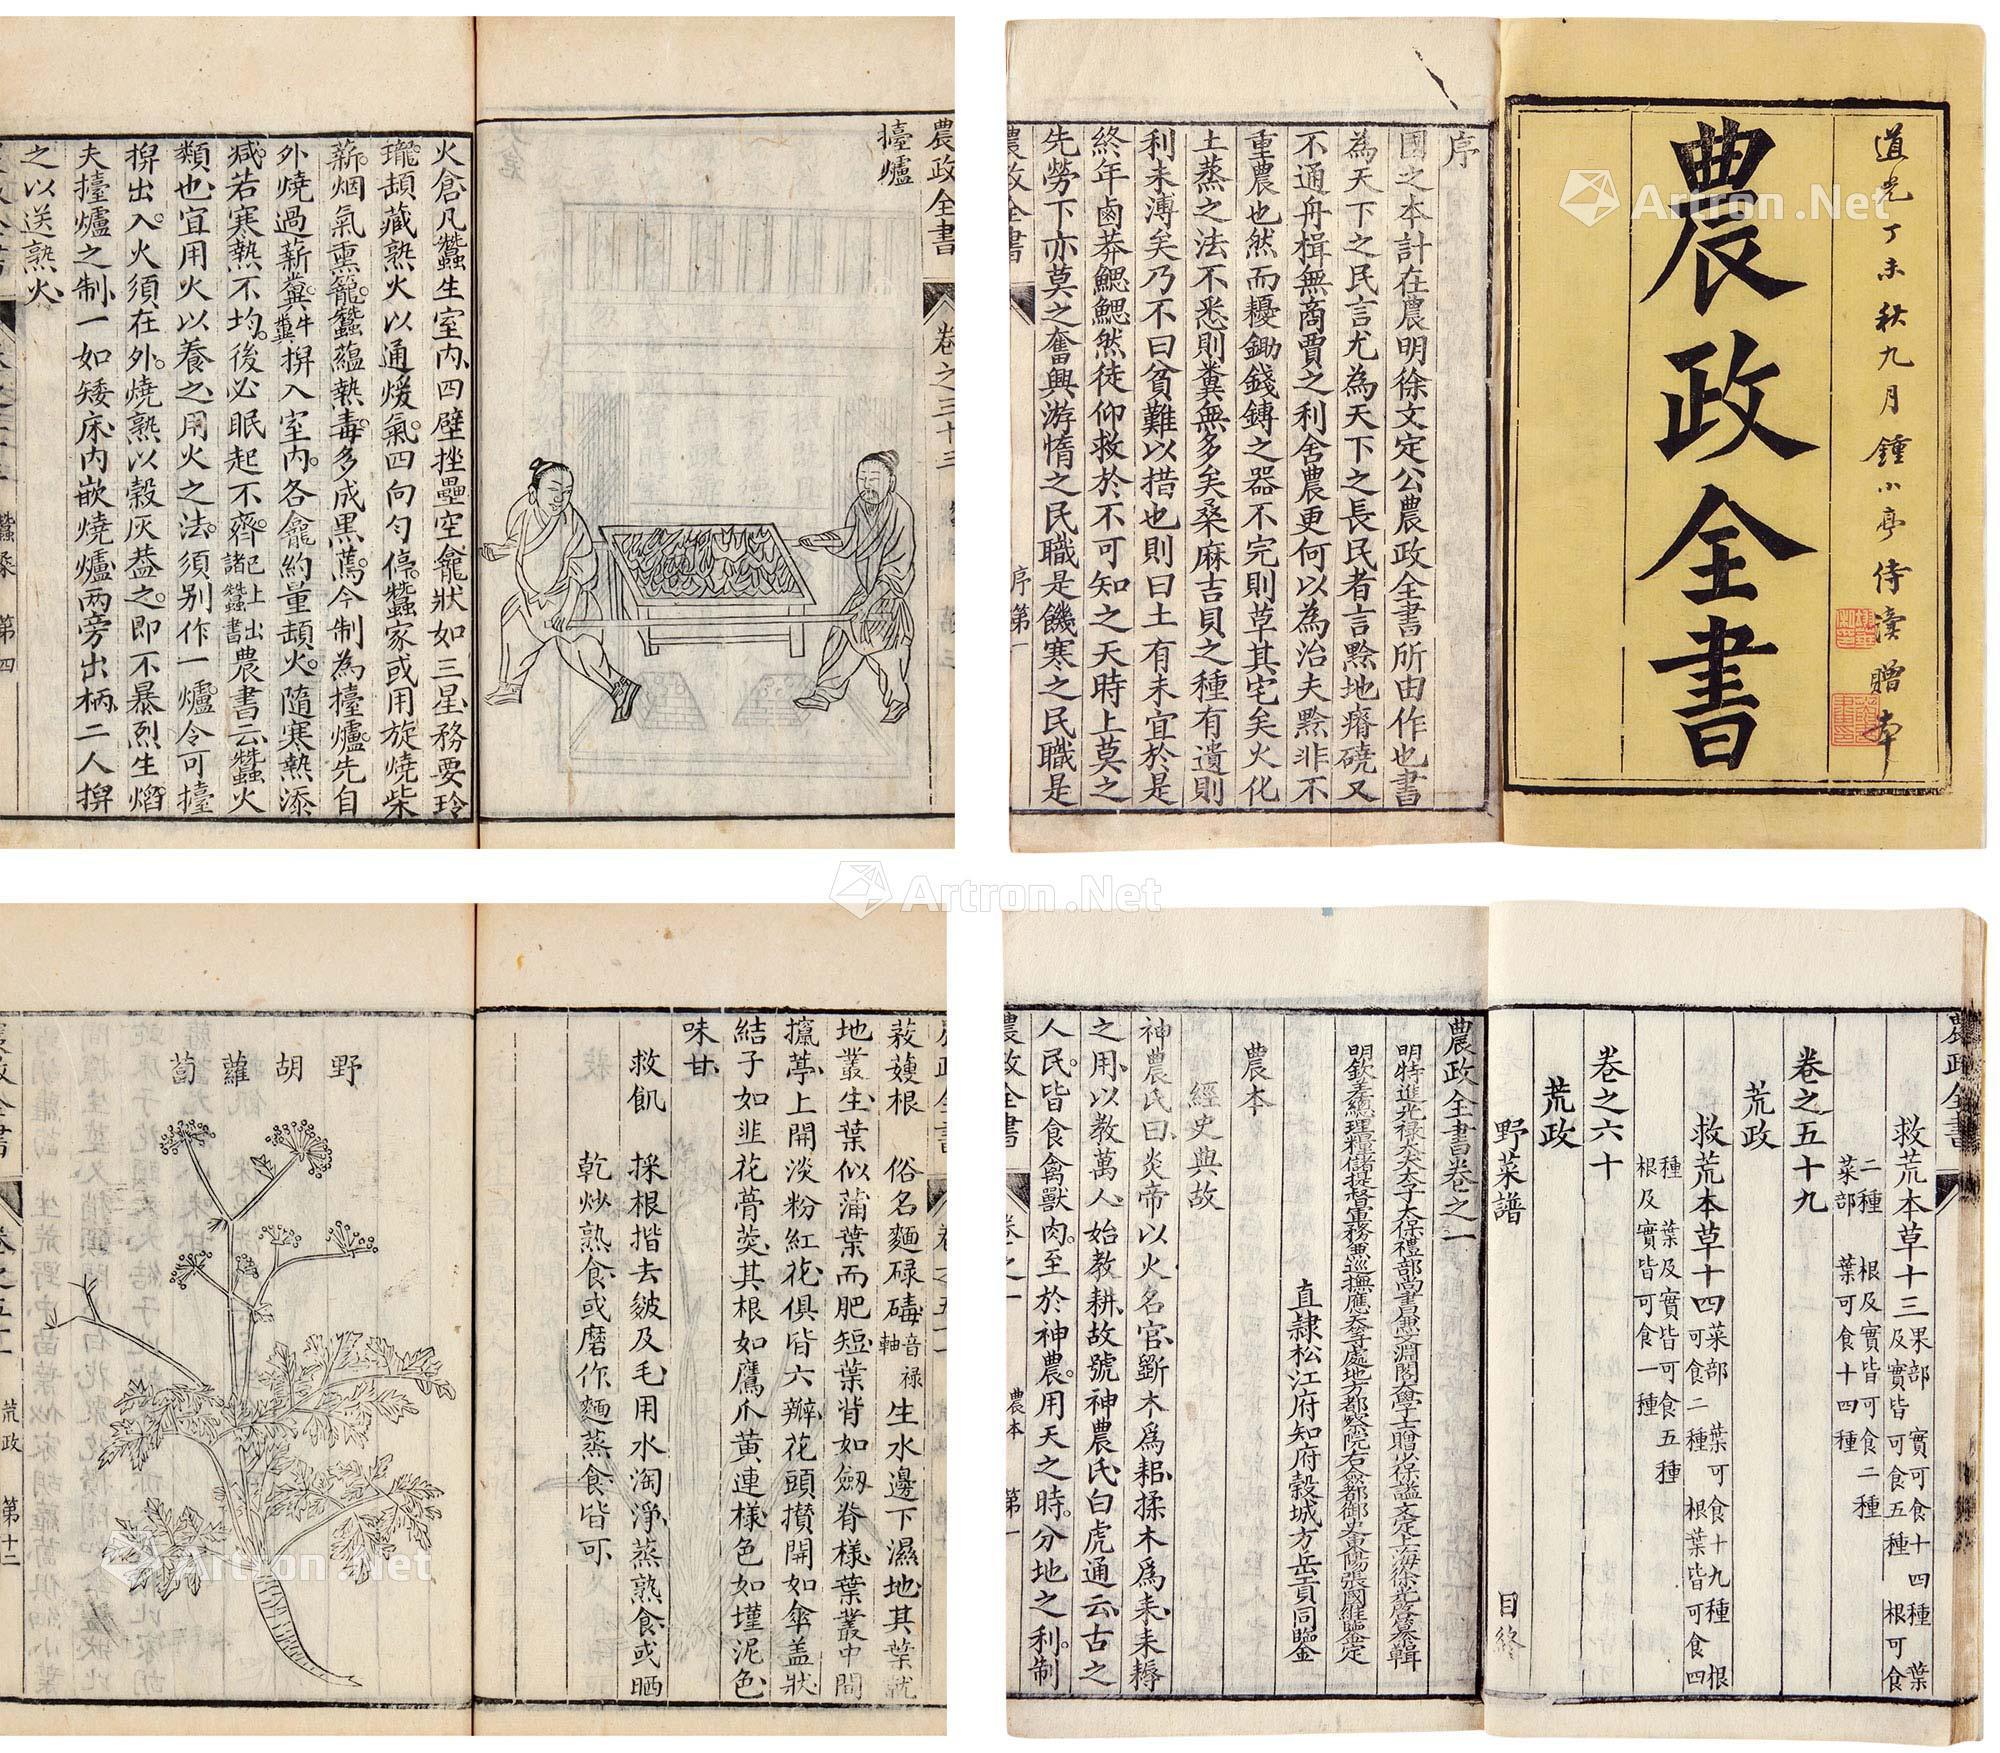 道光丁未秋九月鍾小亭侍讀贈本
農政全書
序
國之本計在農明徐文定公農政全書所由作也書
為天下之民言尤為天下之長民者言黔地瘠磽又
不通舟楫無商賈之利舍農更何以為治夫黔非不
重農也然而耰鋤錢鎛之器不完則草其宅矣火化
土蒸之法不悉則糞無多矣桑麻吉貝之種有遺則
利未溥矣乃不曰貧難以措也則曰土有未宜於是
終年鹵莽鰓鰓然徒仰救於不可知之天時上莫之
先勞下亦莫之奮興游惰之民職是饑寒之民職是
農政全書
序第一
農政全書
卷之三十三
擡爐
火倉凡蠶生室內四壁挫壘空龕狀如三星務要玲
瓏頡藏熟火以通煖氣四向勻停蠶家或用旋燒柴
薪烟氣熏籠蠶蘊熱毒多成黑蔫今制為擡爐先自
外燒過薪糞牛糞搿入室內各龕約量頡火隨寒熱添
減若寒熱不均後必眠起不齊已上出諸蠶書農書云蠶火
類也宜用火以養之用火之法須别作一爐令可擡
搿出入火須在外燒熟以穀灰葢之即不暴烈生焰
夫擡爐之制一如矮床內嵌燒爐兩旁出柄二人搿
之以送熟火
蠶桑
第四
農政全書
救荒本草十三果部 實可食十四種 葉及實皆可食五種 根可食
二種 根及實皆可食二種
菜部 葉可食十四種
卷之五十九
荒政
救荒本草十四菜部 葉可食十九種 根可食二種 根葉皆可食四
種 葉及實皆可食五種
根及實皆可食一種
卷之六十
荒政
野菜譜
目終
農政全書卷之一
明特進光祿大夫太子太保禮部尚書兼文淵閣大學士贈少保諡文定上海徐光啓纂輯
明欽差總理糧儲提督軍務兼巡撫應天等處地方都察院右僉都御史東陽張國維鑒定
直隸松江府知府穀城方岳貢同鑒
農本
經史典故
神農氏曰炎帝以火名官斵木為耜揉木為耒耒耨
之用以教萬人始教耕故號神農氏白虎通云古之
人民皆食禽獸肉至於神農用天之時分地之利制
農政全書
卷之一
農本
第一
農政全書
菽蔆根 俗名麵碌碡音祿軸生水邊下濕地其葉就
地叢生葉似蒲葉而肥短葉背如劒脊樣葉叢中間
攛葶上開淡粉紅花俱皆六瓣花頭攢開如傘蓋狀
結子如韭花蓇葖其根如鷹爪黃連樣色如墐泥色
味甘
救飢 採根揩去皴及毛用水淘淨蒸熟食或晒
乾炒熟食或磨作麵蒸食皆可
野胡蘿蔔
農政全書
荒政
第十二
Artron.Net
Artron.Net
Artron.Net